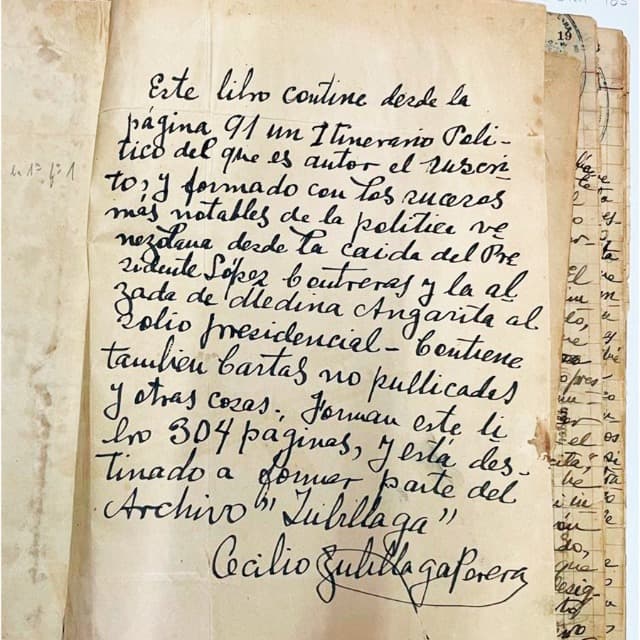 Este libro contine desde la
página 91 un Itinerario Polí-
tico del que es autor el suscri-
to, y formado con los sucesos
más notables de la política ve
nezolana desde la caida del Pre
sidente López Contreras y la al
zada de Medina Angarita al
solio presidencial - Contiene
tambien Cartas no publicadas
y otras cosas. Forman este li
bro 304 páginas, y está des-
tinado a formar parte del
Archivo "Zubillaga"
Cecilio Zubillaga Perera
19